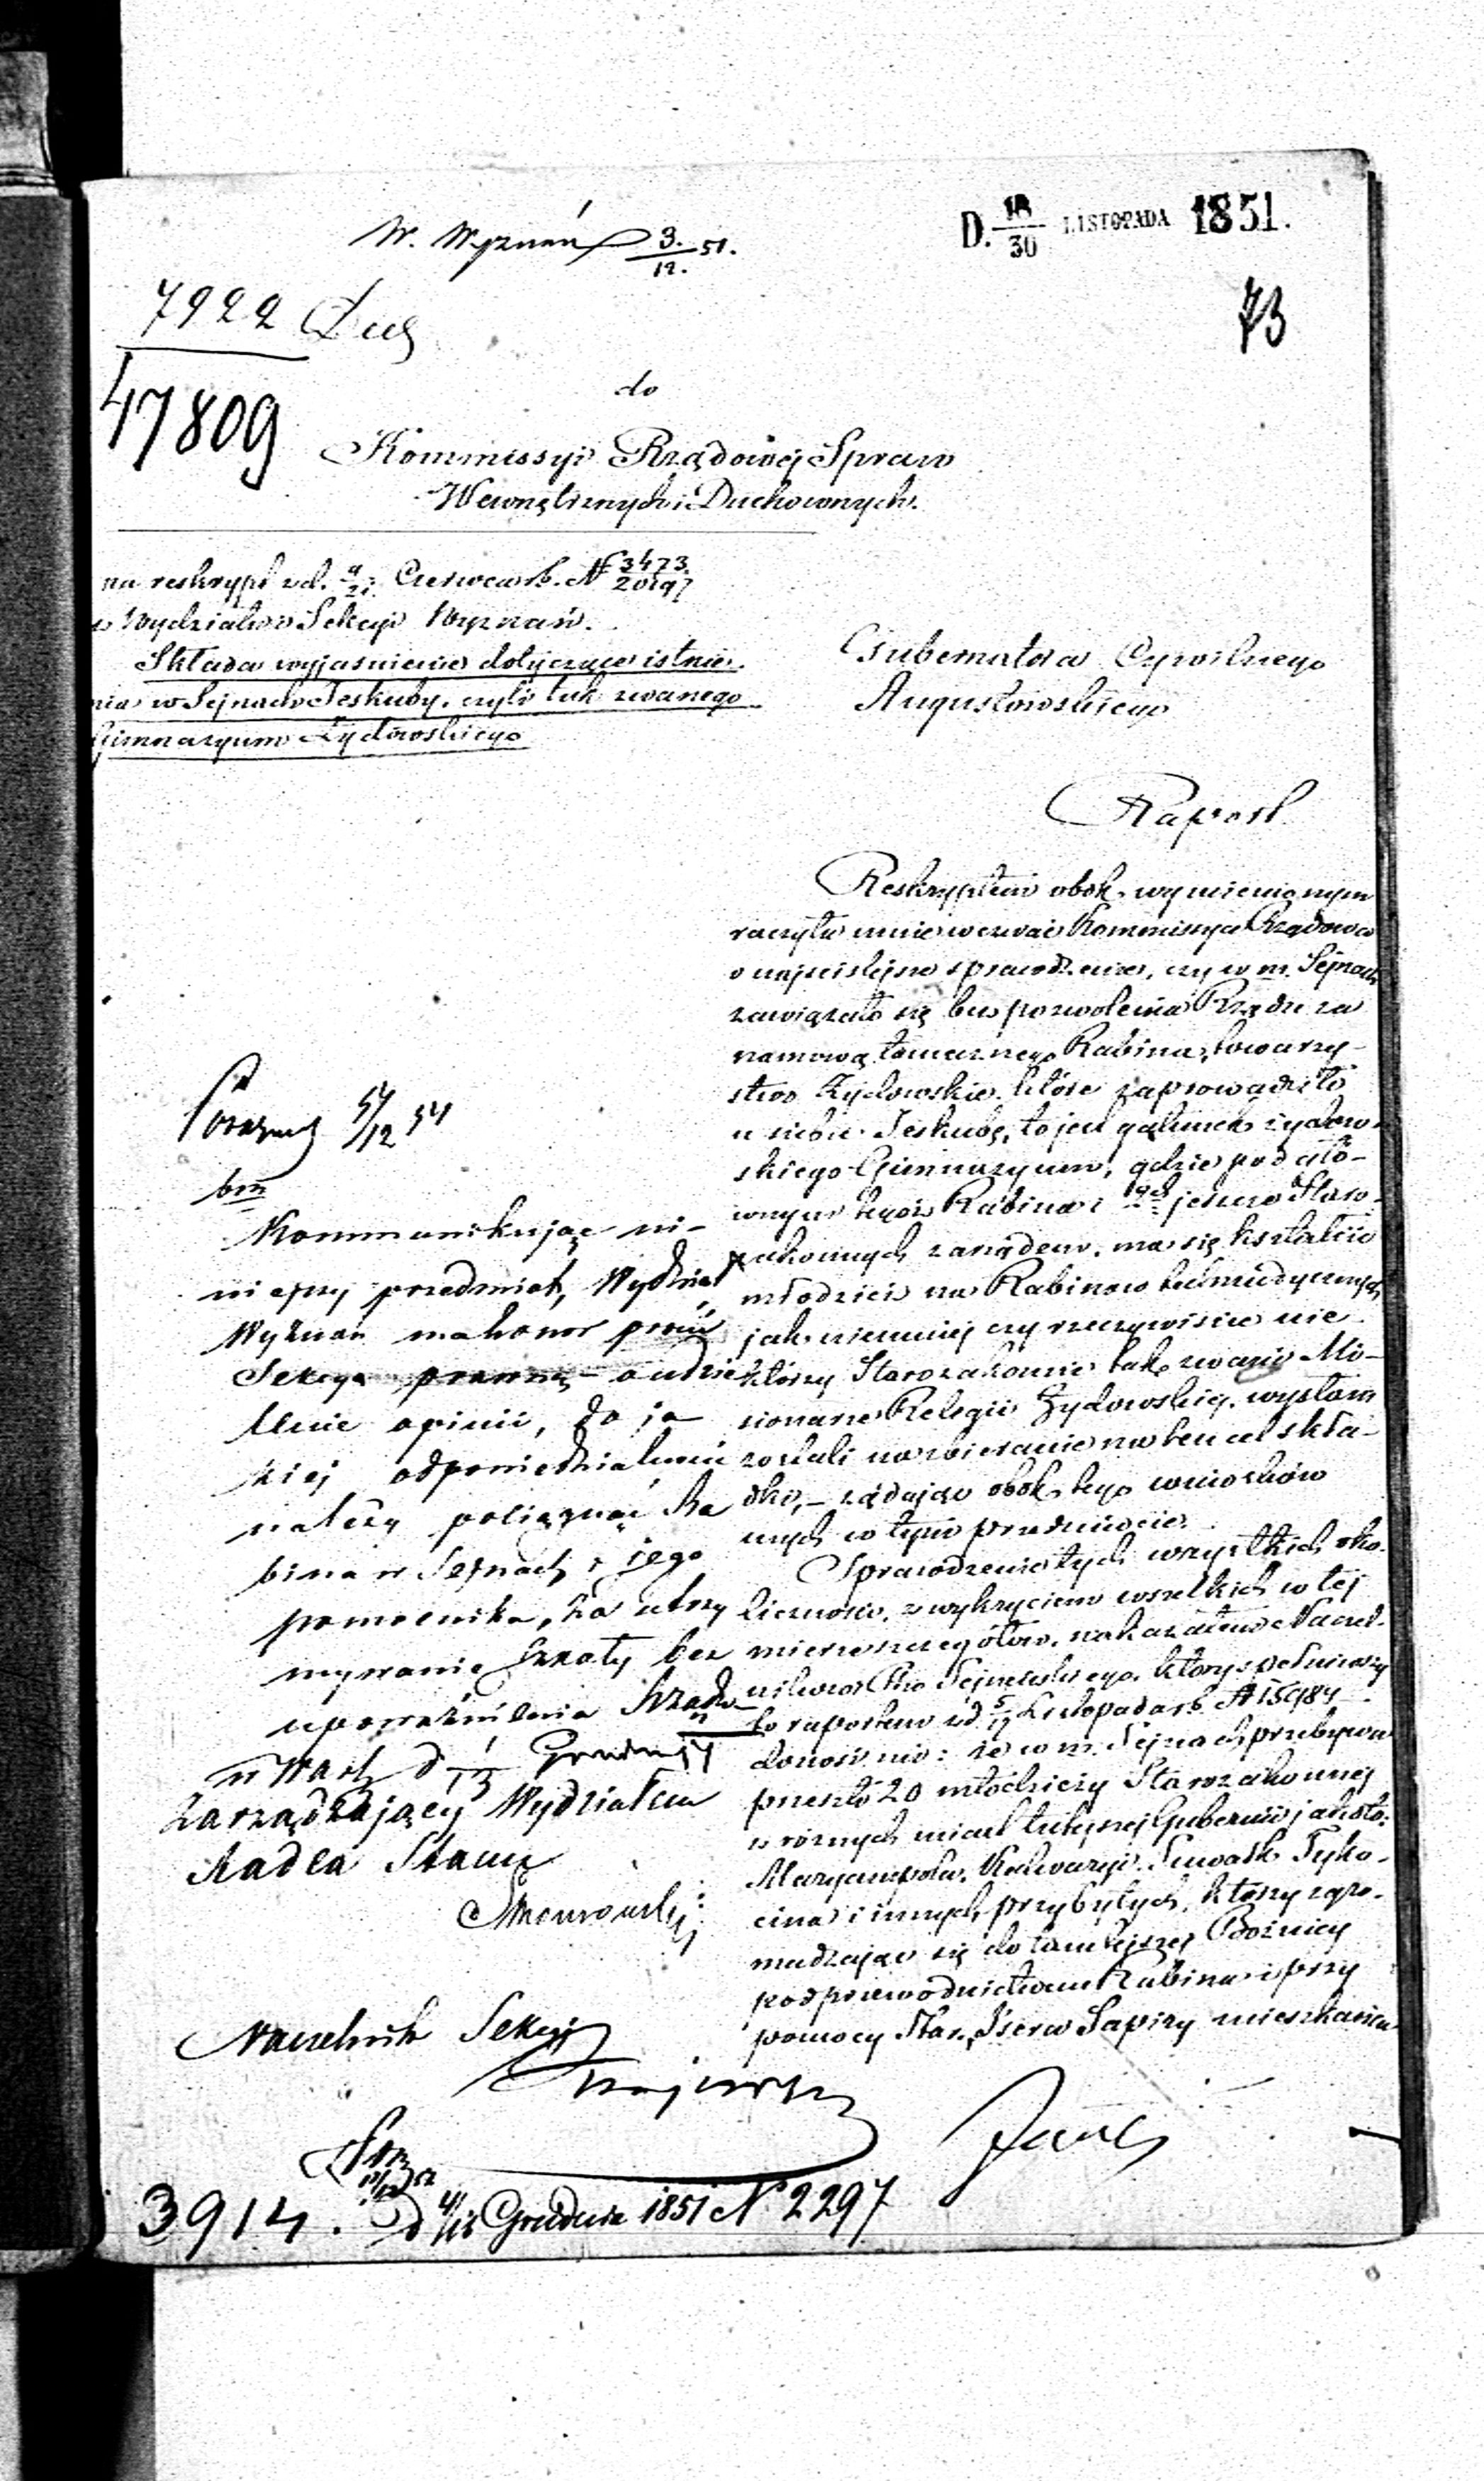 W. Wyznań 3./12. 51.
D. 18/30 LISTOPADA 1851.
73
7922
47809
do
Kommissyi Rządowej Spraw
Wewnętrznych i Duchownych.
na reskrypt z d. 9/21 Czerwca r.b. N 3473/20197
z Wydziału Sekcyi Wyznań.
Składa wyjasnienie dotyczące istnie-
nia w Sejnach Jeskuby, czyli tak zwanego
Gimnazyum Żydowskiego
Gubernatora Cywilnego
Augustowskiego
Raport
Reskryptem obok wymienionym
raczyła mnie wezwać Kommissya Rządowa
o najscislejsze sprawdzenie, czy w m. Sejnach
zawiązało się bez pozwolenia Rządu za
namową tamecznego Rabina, towarzy-
stwo Żydowskie, które zaprowadziło
u siebie Jeskubę, to jest gatunek żydow-
skiego Gimnazyum, gdzie pod głó-
wnym tegoż Rabina i jeszcze Staro-
zakonnych zarządem, ma się kształcić
młodzież na Rabinów talmudycznych
jak niemniej czy rzeczywiscie nie-
którzy Starozakonni tak zwani Mi-
sionarze Religii Żydowskiej, wysłani
zostali na zbieranie na ten cel skła-
dki, – żądając obok tego wniosków
mych w tym przedmiocie.
Sprawdzenie tych wszystkich oko-
liczności, z wykryciem wszelkich w tej
mierze szczegółów, nakazałem Naczel-
nikowi Ptu Sejneńskiego, który spełniwszy
to raportem z d. 5/17 Listopada r.b. N 15984
donosi mi: że w m. Sejnach przebywa
przeszło 20 młodzieży Starozakonnej
z różnych miast tutejszej Gubernii jakoto:
Maryampola, Kalwaryi, Suwałk, Tyko-
cina i innych przybyłych, którzy zgro-
madzając się do tamtejszej Bożnicy
pod przewodnictwem Rabina i przy
pomocy Star. Sapiry mieszkańca
51/12 51
bm
Kommunikując ni-
niejszy przedmiot, Wydział
Wyznań ma honor prosić
Sekcyą prawną o udzie-
lenie opinii, do ja-
kiej odpowiedzialności
należy pociągnąć Ra-
bina w Sejnach i jego
pomocnika, za utrzy-
mywanie szkoły bez
upoważnienia Rządu
w Warsz d 1/13 Grudnia 51
Zarządzający Wydziałem
Radca Stanu
Naczelnik Sekcyi
3914. D 4/16 Grudnia 1851 N 2297